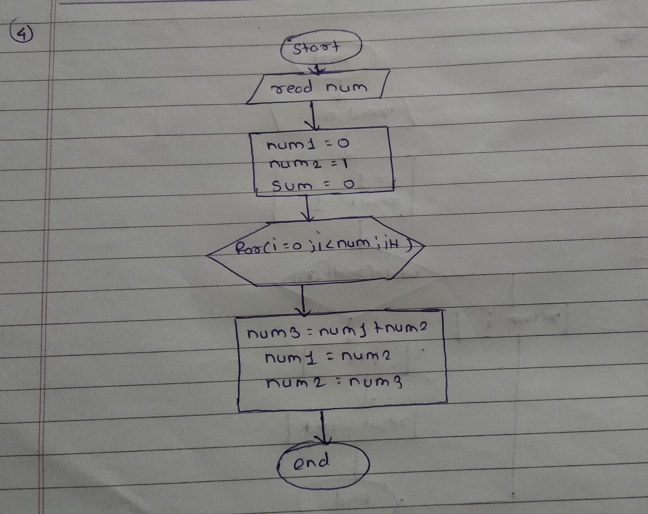 4
Start
read num
num1 = 0
num2 = 1
sum = 0
for(i=0;i<num;i++)
num3 = num1+num2
num1 = num2
num2 = num3
end